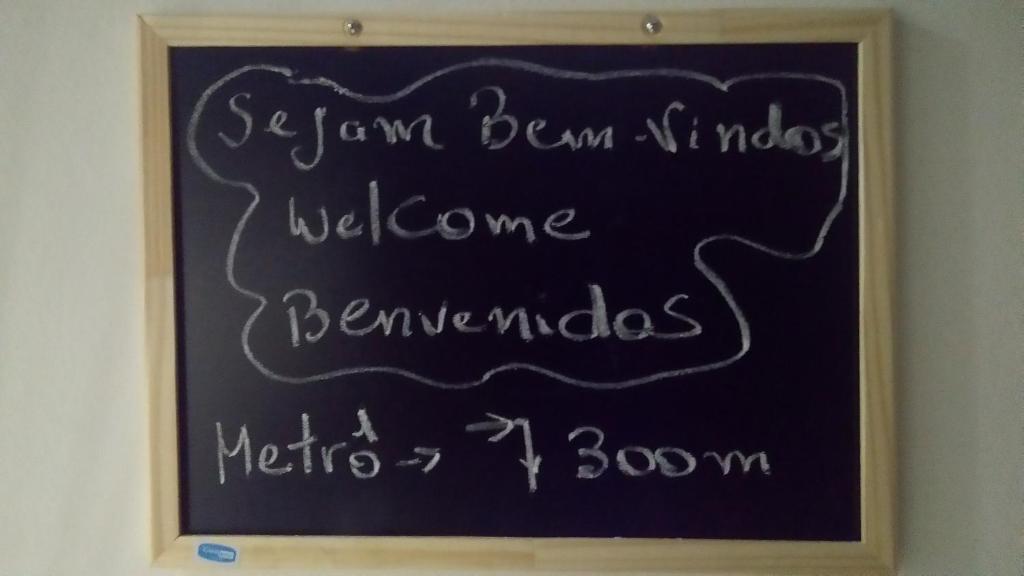 Sejam Bem-Vindos
Welcome
Benvenidos
Metrô → → ↓ 300m